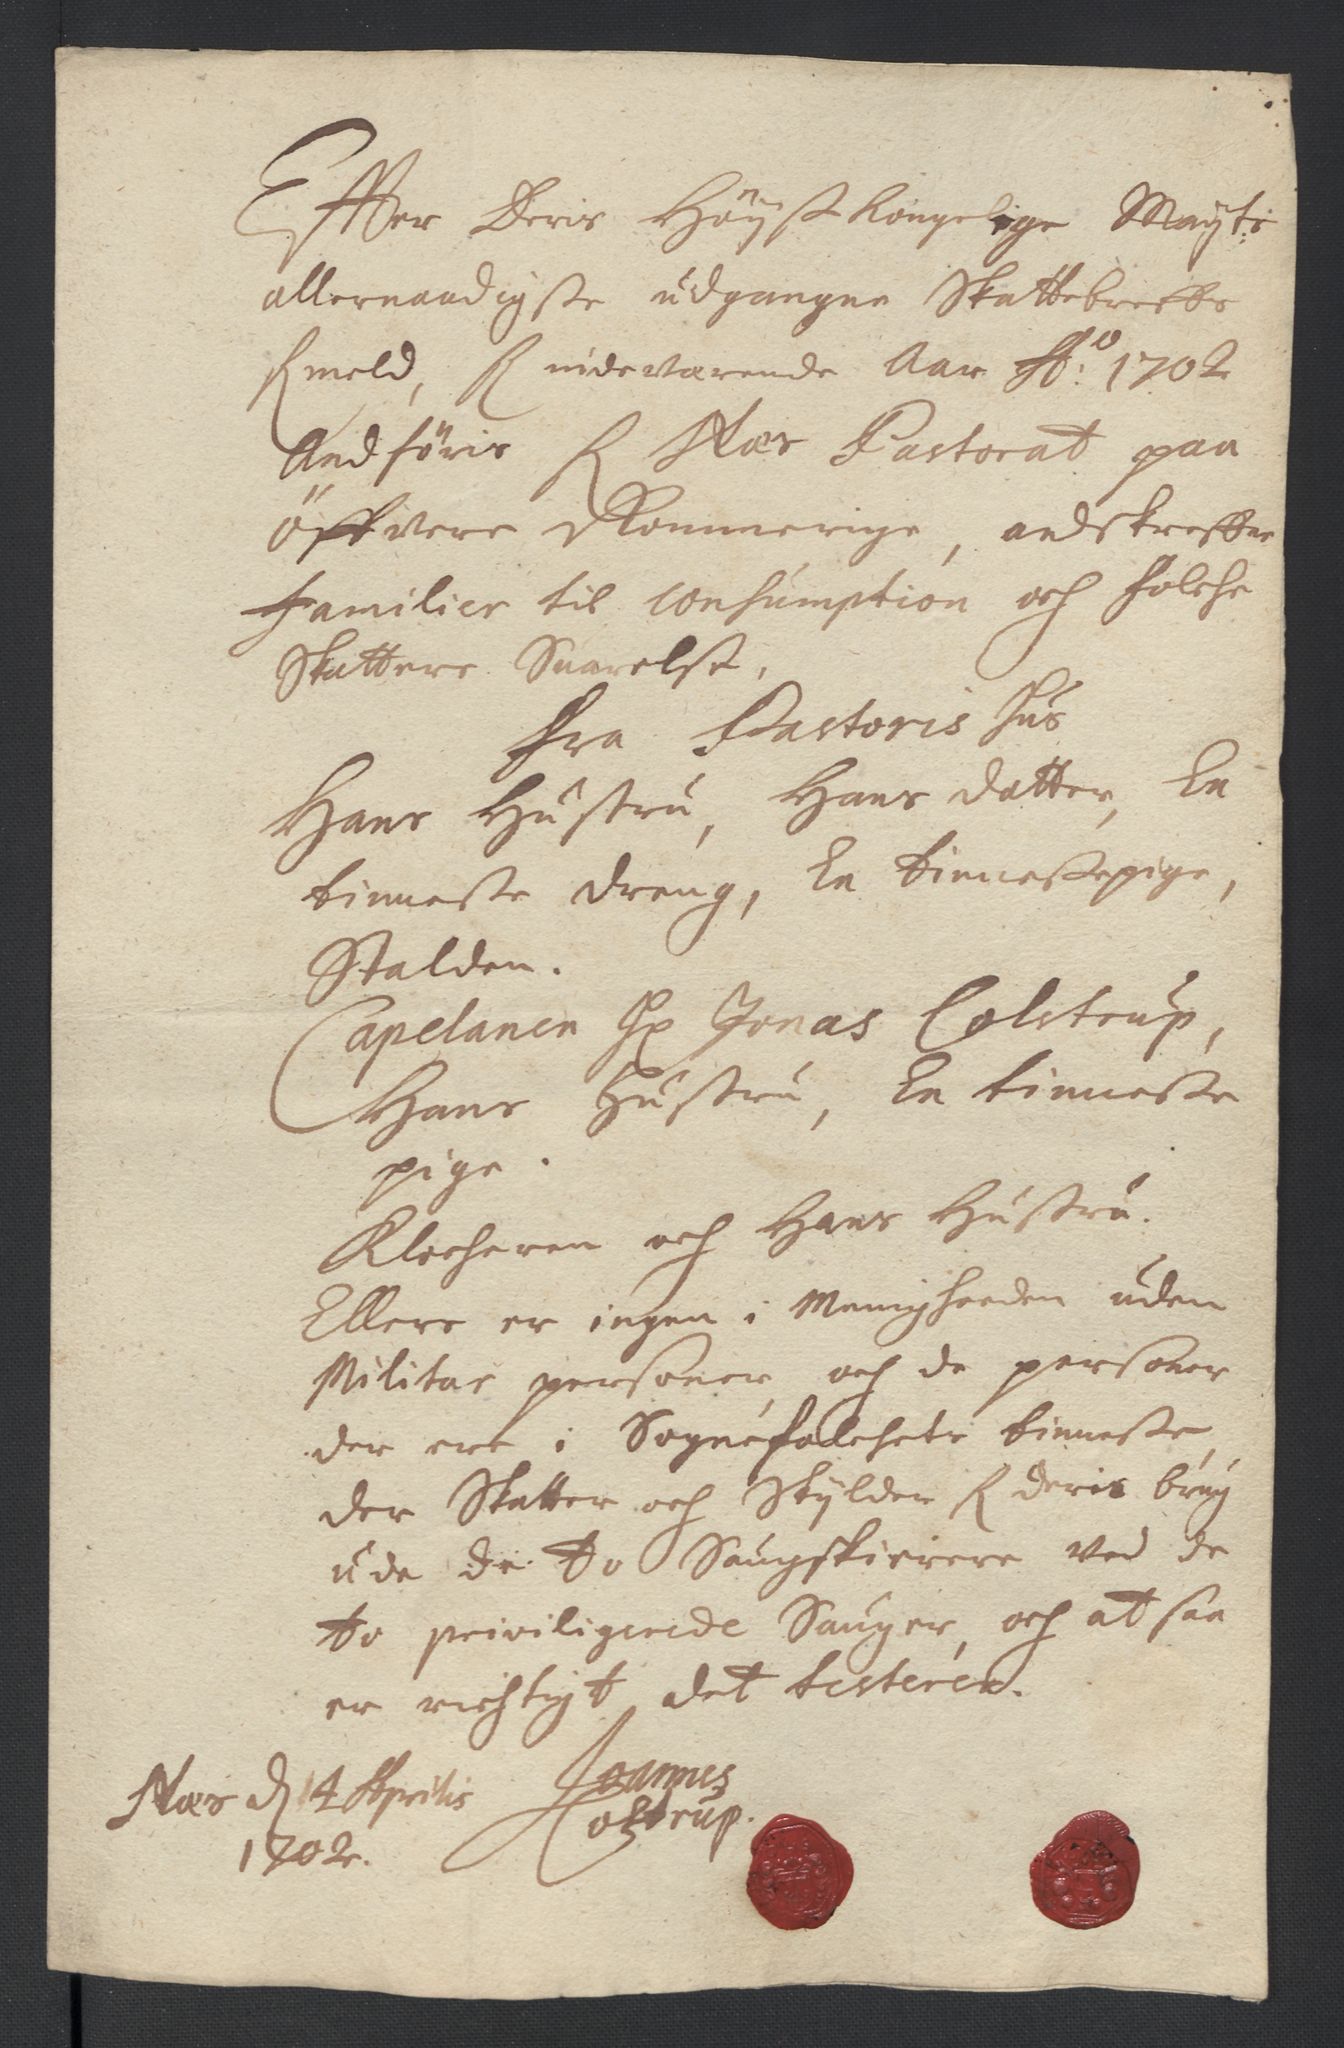 Effter Deris Höyst Kongelige Mayts:
allernaadigste udgangne Skattebreffs
formeld, for nærværende Aar Ao: 1702
Andföris for Næs Pastorat paa
Öffvere Rommerige, andskreffne
familier til consumption och folche
Skatters Suarelse.
fra Pastoris hus
Hans Hustru, Hans datter, En
tienneste dreng, En tiennestepige,
Stalden.
Capelanen Hr Jonas Colstrup,
Hans Hustru, En tienneste
pige.
Klocheren och Hans Hustru.
Ellers er ingen i Menigheeden uden
Militar personer, och de personer
der ere i Sognefolchets tienneste,
der Skatter och Skylder for deris brug
uden de to Saugskierere ved de
to priviligerede Sauger, och at saa
er richtigt det testerer.
Næs d 14 Aprilis
1702.
Joannes
Colstrup.